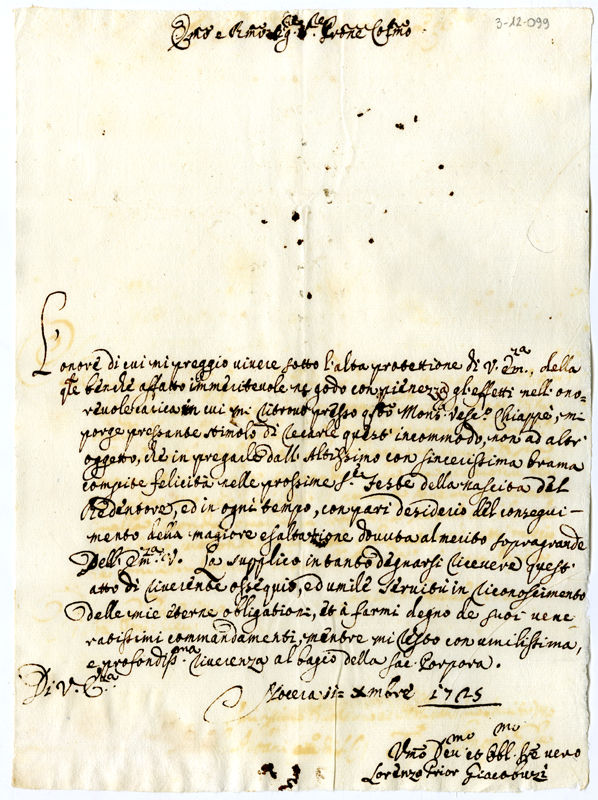 3-12-099
Emo e Rmo Sig.r Sig.r Prone Colmo
L'onore di cui mi preggio vivere sotto l'alta protettione di V. Em.za, della
q̃le benche affatto immeritevole ne godo con pienezza gl'effetti nell'ono-
revole carica in cui mi ritrovo presso q̃sto Mons.r Vesc.o Chiappè, mi
porge pressante stimolo di recarle quest'incommodo, non ad altr'
oggetto, che in pregarle dall'Altissimo con sincerissima brama
compite felicità nelle prossime S.te Feste della nascita del
Redentore, ed in ogni tempo, con pari desiderio del consegui-
mento della magiore esaltazione dovuta al merito sopragrande
Dell'Em.za V. La supplico intanto degnarsi ricevere quest'
atto di riverente ossequio, ed umile servitù in riconoscimento
delle mie eterne obligationi, et à farmi degno de suoi vene-
ratissimi commandamenti, mentre mi resto con umilissima,
e profondiss.ma riverenza al bagio della Sac. Porpora.
Di V. Em.za
Nocera 11 xmbre 1725
Vmo Devmo et Obblmo Sre vero
Lorenzo Prior Giacobuzi